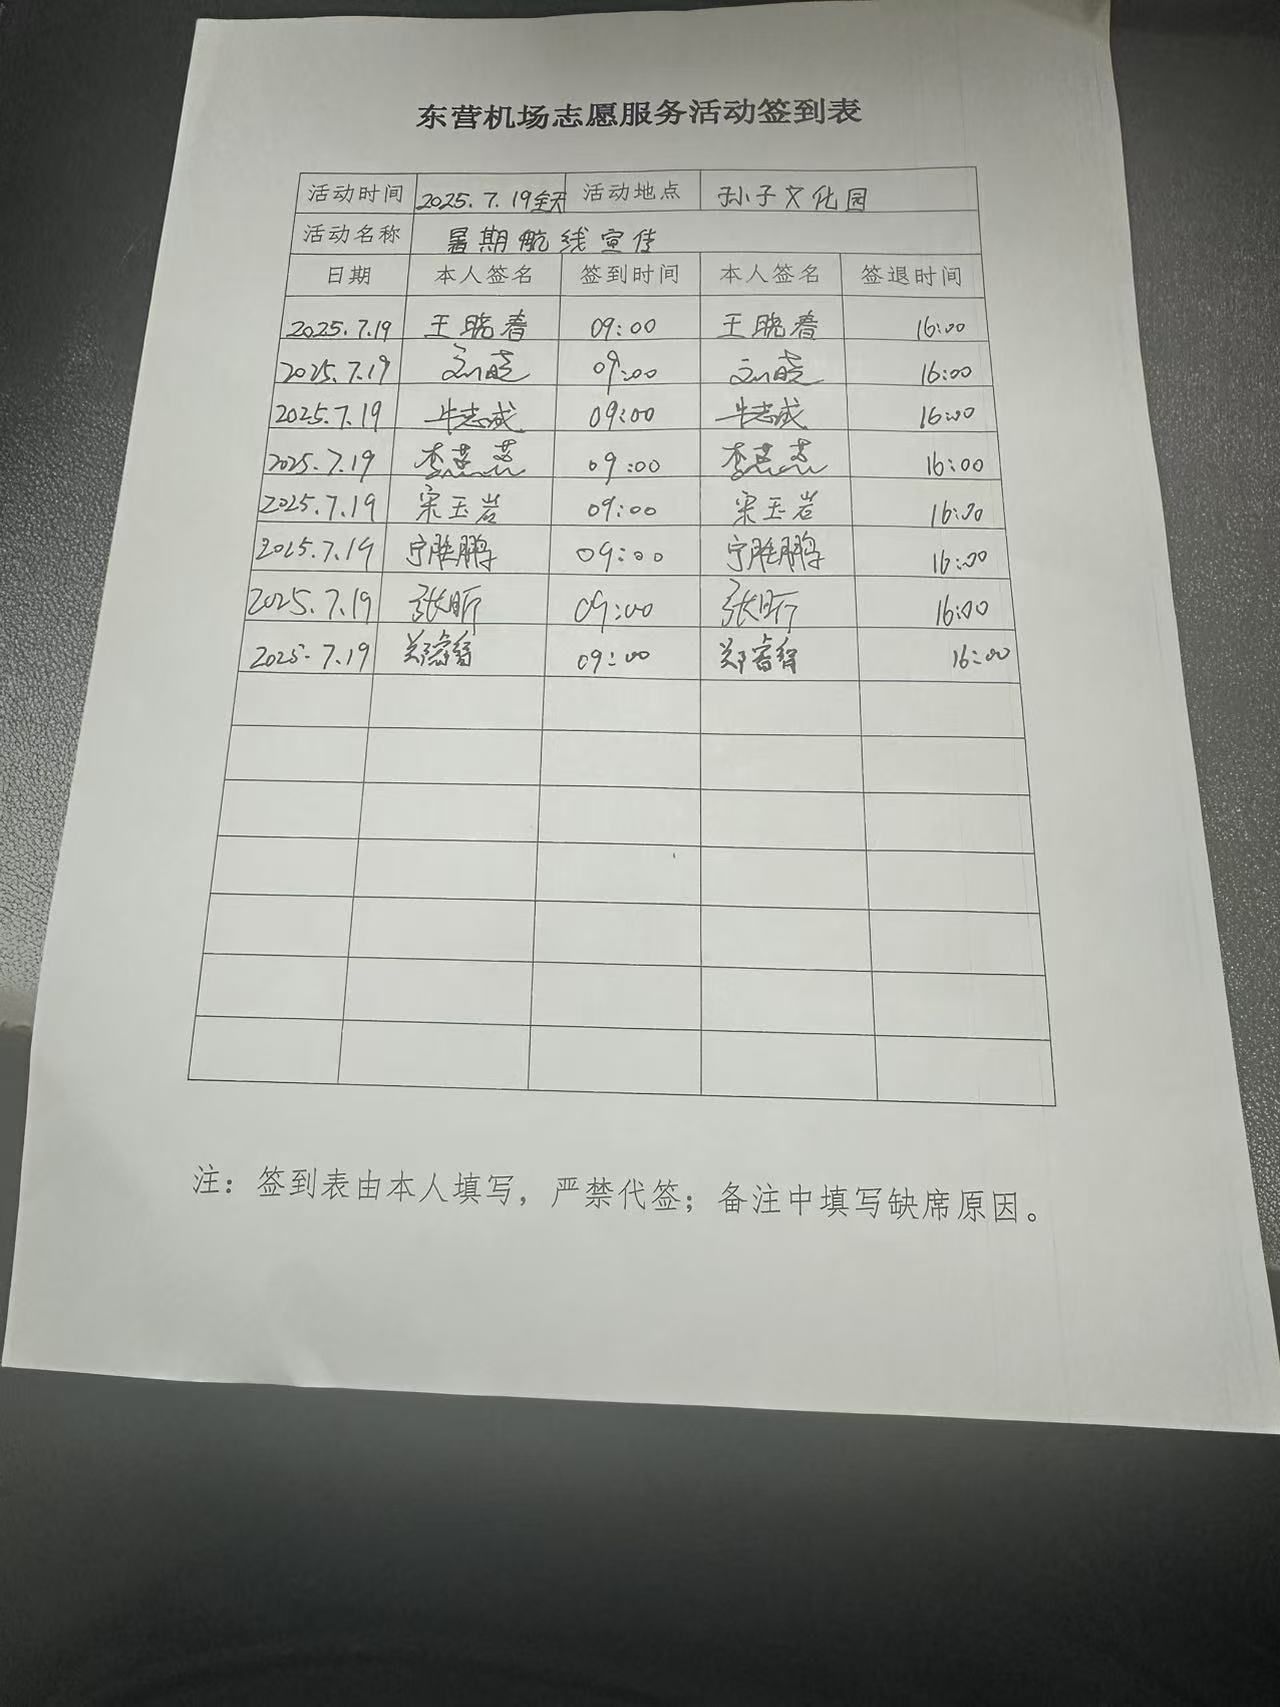 东营机场志愿服务活动签到表
活动时间 2025.7.19全天 活动地点 孙子文化园
活动名称 暑期航线宣传
日期 本人签名 签到时间 本人签名 签退时间
2025.7.19 王晓春 09:00 王晓春 16:00
2025.7.19 刘晓 09:00 刘晓 16:00
2025.7.19 牛志成 09:00 牛志成 16:00
2025.7.19 李燕燕 09:00 李燕燕 16:00
2025.7.19 宋玉岩 09:00 宋玉岩 16:00
2025.7.19 宁胜鹏 09:00 宁胜鹏 16:00
2025.7.19 张昕 09:00 张昕 16:00
2025.7.19 郑睿 09:00 郑睿 16:00
注：签到表由本人填写，严禁代签；备注中填写缺席原因。